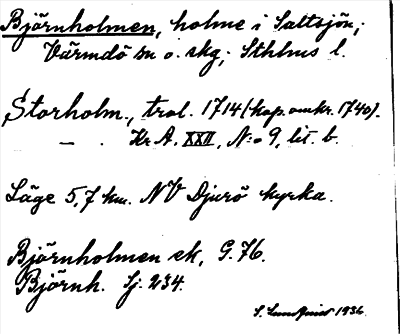 Björnholmen, holme i Saltsjön;
Värmdö sn o. skg; Sthlms l.
Storholm., trol. 1714 (kop. omkr. 1740).
— . Kr A. XXII, N:o 9, lit. b.
Läge 5,7 km. NV Djurö kyrka.
Björnholmen ek, G. 76.
Björnh. Sj. 234.
S. Lundquist 1936.